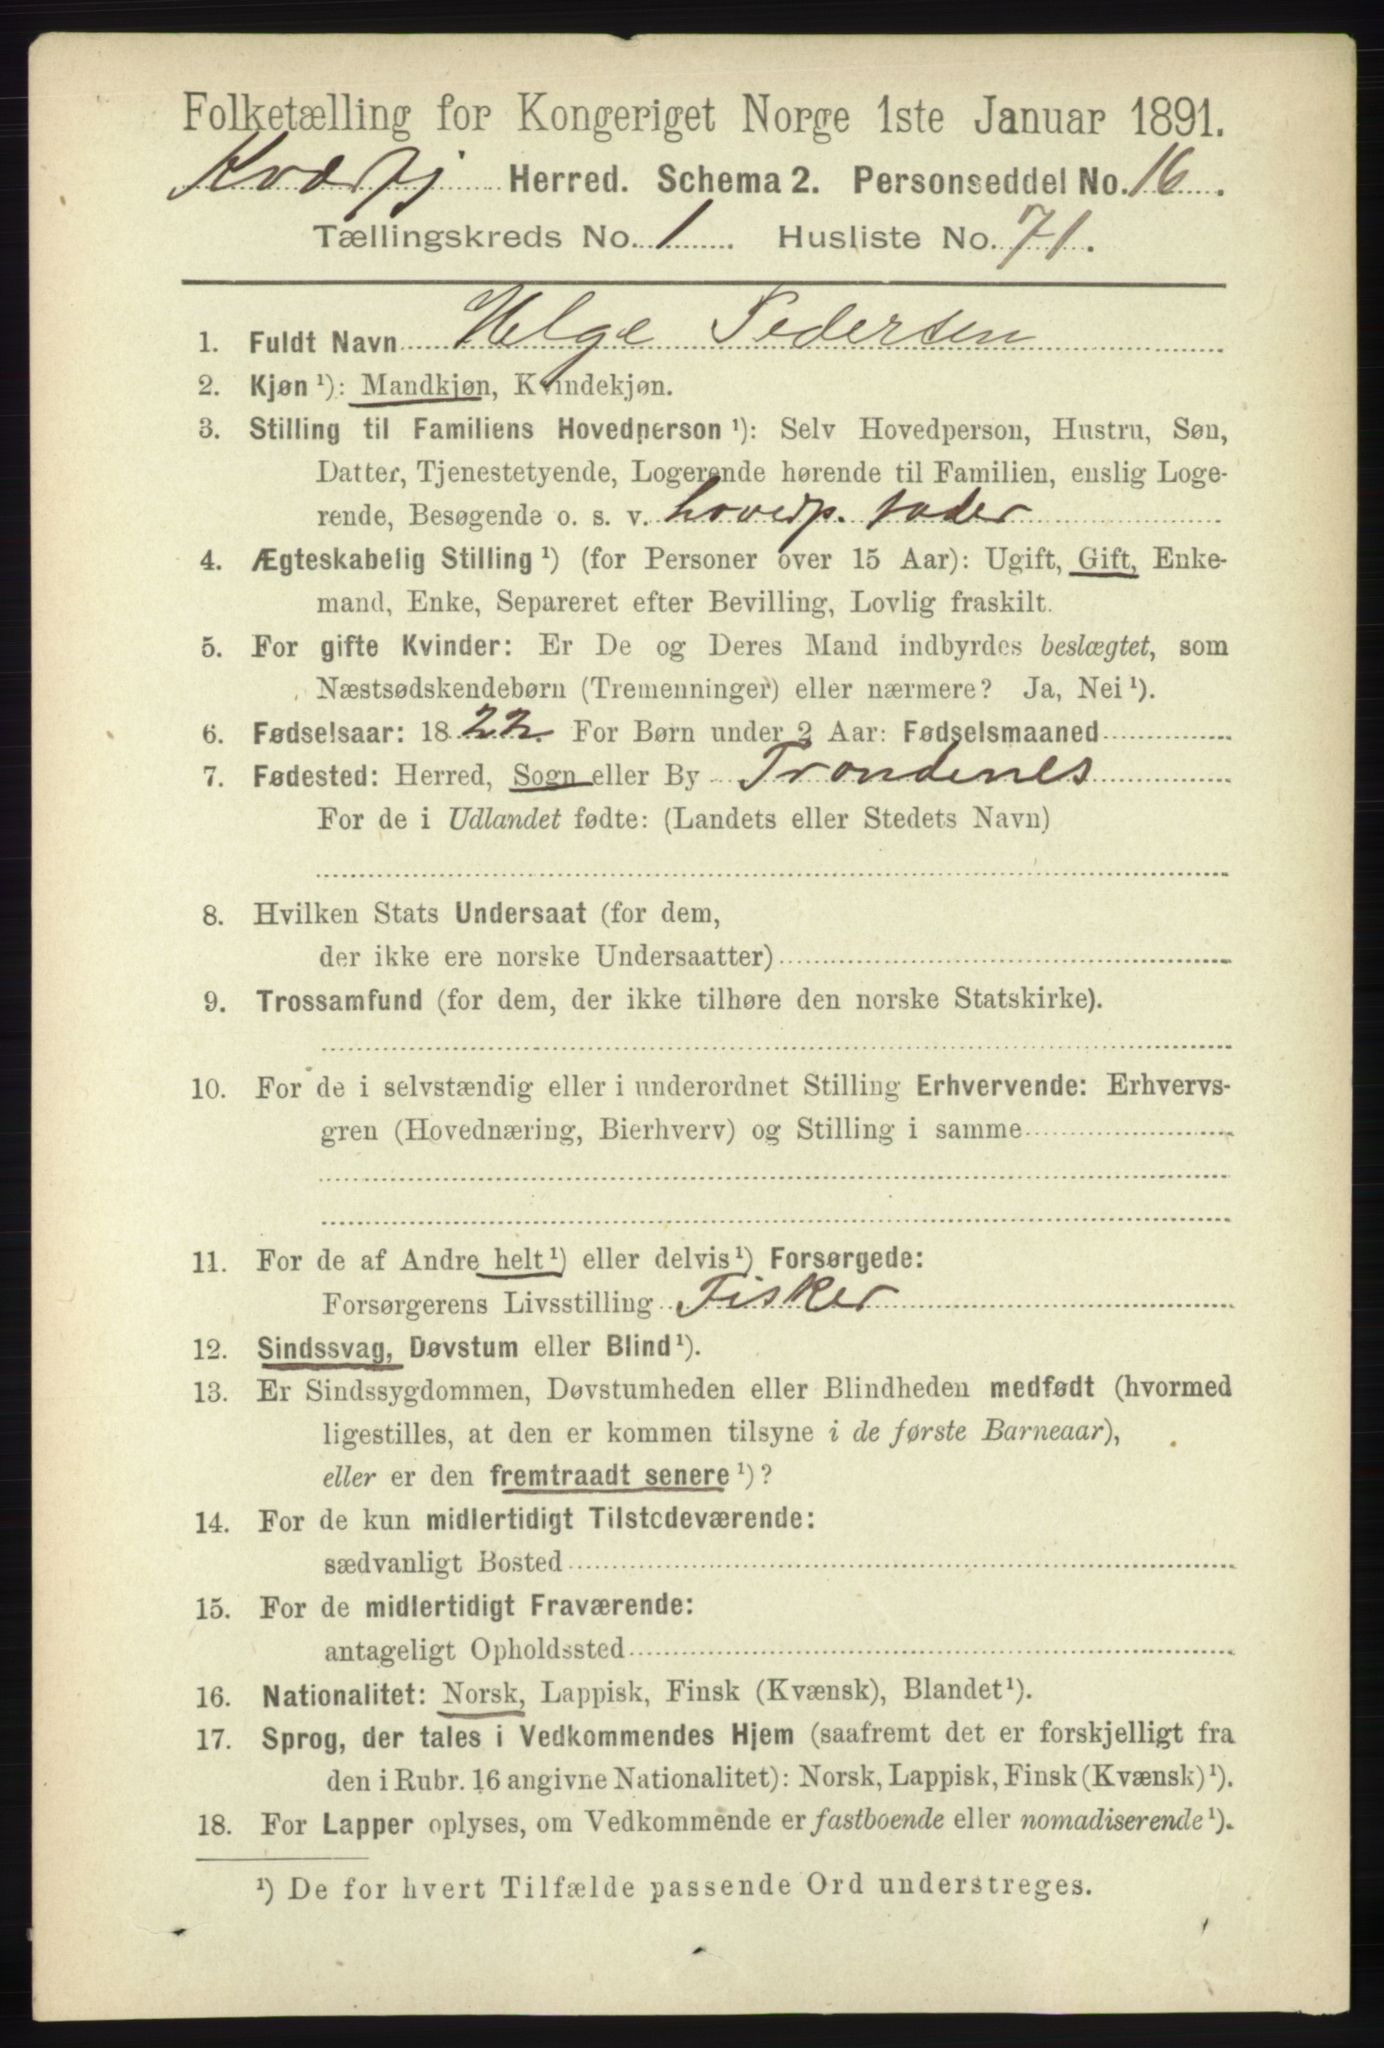 Folketælling for Kongeriget Norge 1ste Januar 1891.
Kvæfj Herred. Schema 2. Personseddel No. 16.
Tællingskreds No. 1 Husliste No. 71.
1. Fuldt Navn Helge Pedersen
2. Kjøn ¹): Mandkjøn, Kvindekjøn.
3. Stilling til Familiens Hovedperson ¹): Selv Hovedperson, Hustru, Søn,
Datter, Tjenestetyende, Logerende hørende til Familien, enslig Loge-
rende, Besøgende o. s. v. hovedp. fader
4. Ægteskabelig Stilling ¹) (for Personer over 15 Aar): Ugift, Gift, Enke-
mand, Enke, Separeret efter Bevilling, Lovlig fraskilt.
5. For gifte Kvinder: Er De og Deres Mand indbyrdes beslægtet, som
Næstsødskendebørn (Tremenninger) eller nærmere? Ja, Nei ¹).
6. Fødselsaar: 1822. For Børn under 2 Aar: Fødselsmaaned
7. Fødested: Herred, Sogn eller By Trondenes
For de i Udlandet fødte: (Landets eller Stedets Navn)
8. Hvilken Stats Undersaat (for dem,
der ikke ere norske Undersaatter)
9. Trossamfund (for dem, der ikke tilhøre den norske Statskirke).
10. For de i selvstændig eller i underordnet Stilling Erhvervende: Erhvervs-
gren (Hovednæring, Bierhverv) og Stilling i samme
11. For de af Andre helt ¹) eller delvis ¹) Forsørgede:
Forsørgerens Livsstilling Fisker
12. Sindssvag, Døvstum eller Blind ¹).
13. Er Sindssygdommen, Døvstumheden eller Blindheden medfødt (hvormed
ligestilles, at den er kommen tilsyne i de første Barneaar),
eller er den fremtraadt senere ¹)?
14. For de kun midlertidigt Tilstedeværende:
sædvanligt Bosted
15. For de midlertidigt Fraværende:
antageligt Opholdssted
16. Nationalitet: Norsk, Lappisk, Finsk (Kvænsk), Blandet ¹).
17. Sprog, der tales i Vedkommendes Hjem (saafremt det er forskjelligt fra
den i Rubr. 16 angivne Nationalitet): Norsk, Lappisk, Finsk (Kvænsk) ¹).
18. For Lapper oplyses, om Vedkommende er fastboende eller nomadiserende ¹).
¹) De for hvert Tilfælde passende Ord understreges.